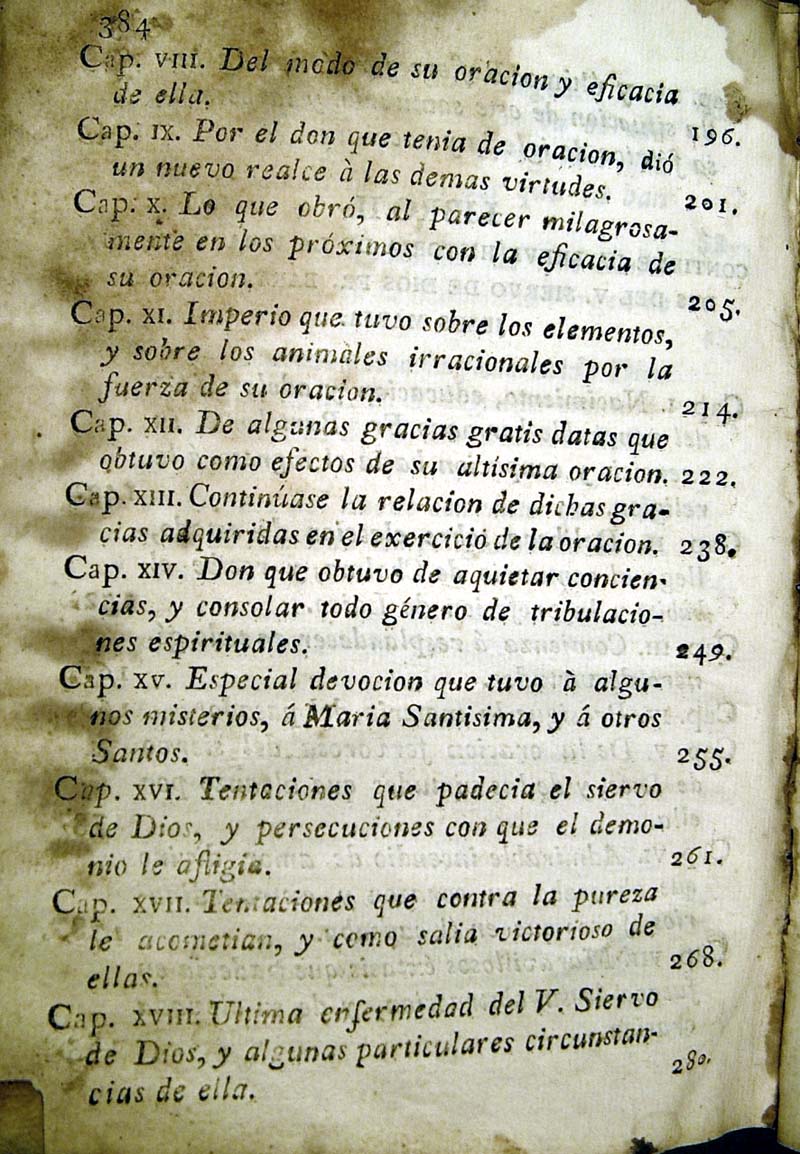 384
Cap. VIII. Del modo de su oracion y eficacia
de ella. 196.
Cap. IX. Por el don que tenia de oracion, dió
un nuevo realce à las demas virtudes. 201.
Cap. X. Lo que obró, al parecer milagrosa-
mente en los próximos con la eficacia de
su oracion. 205.
Cap. XI. Imperio que tuvo sobre los elementos,
y sobre los animales irracionales por la
fuerza de su oracion. 214.
Cap. XII. De algunas gracias gratis datas que
obtuvo como efectos de su altísima oracion. 222.
Cap. XIII. Continúase la relacion de dichas gra-
cias adquiridas en el exercició de la oracion. 238.
Cap. XIV. Don que obtuvo de aquietar concien-
cias, y consolar todo género de tribulacio-
nes espirituales. 249.
Cap. XV. Especial devocion que tuvo à algu-
nos misterios, á Maria Santisima, y á otros
Santos. 255.
Cap. XVI. Tentaciones que padecia el siervo
de Dios, y persecuciones con que el demo-
nio le afligia. 261.
Cap. XVII. Tentaciones que contra la pureza
le acometian, y como salia victorioso de
ellas. 268.
Cap. XVIII. Ultima enfermedad del V. Siervo
de Dios, y algunas particulares circunstan-
cias de ella. 280.